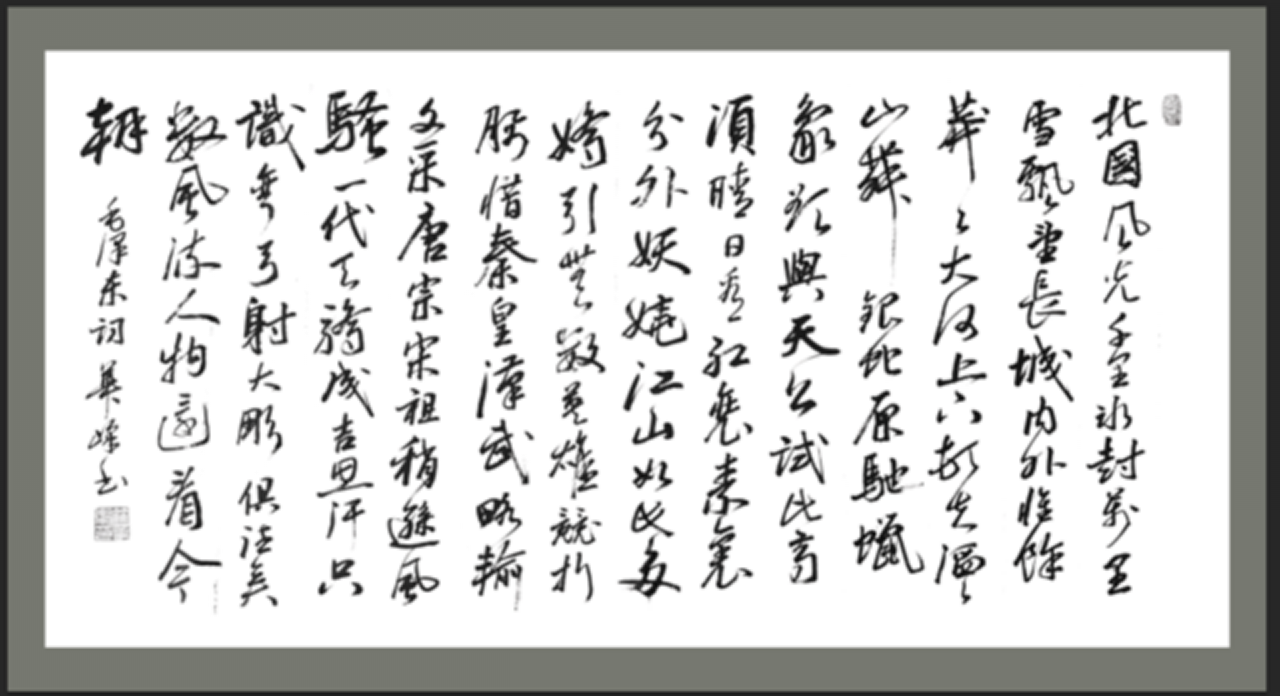 北國風光千里冰封萬里
雪飄望長城内外惟餘
莽〻大河上下頓失滔〻
山舞銀蛇原馳蠟
象欲與天公試比高
須晴日看红裝素裹
分外妖嬈江山如此多
嬌引無數英雄競折
腰惜秦皇漢武略輸
文采唐宗宋祖稍遜風
騷一代天驕成吉思汗只
識彎弓射大彫俱往矣
數風流人物還看今
朝
毛澤东词華峰书